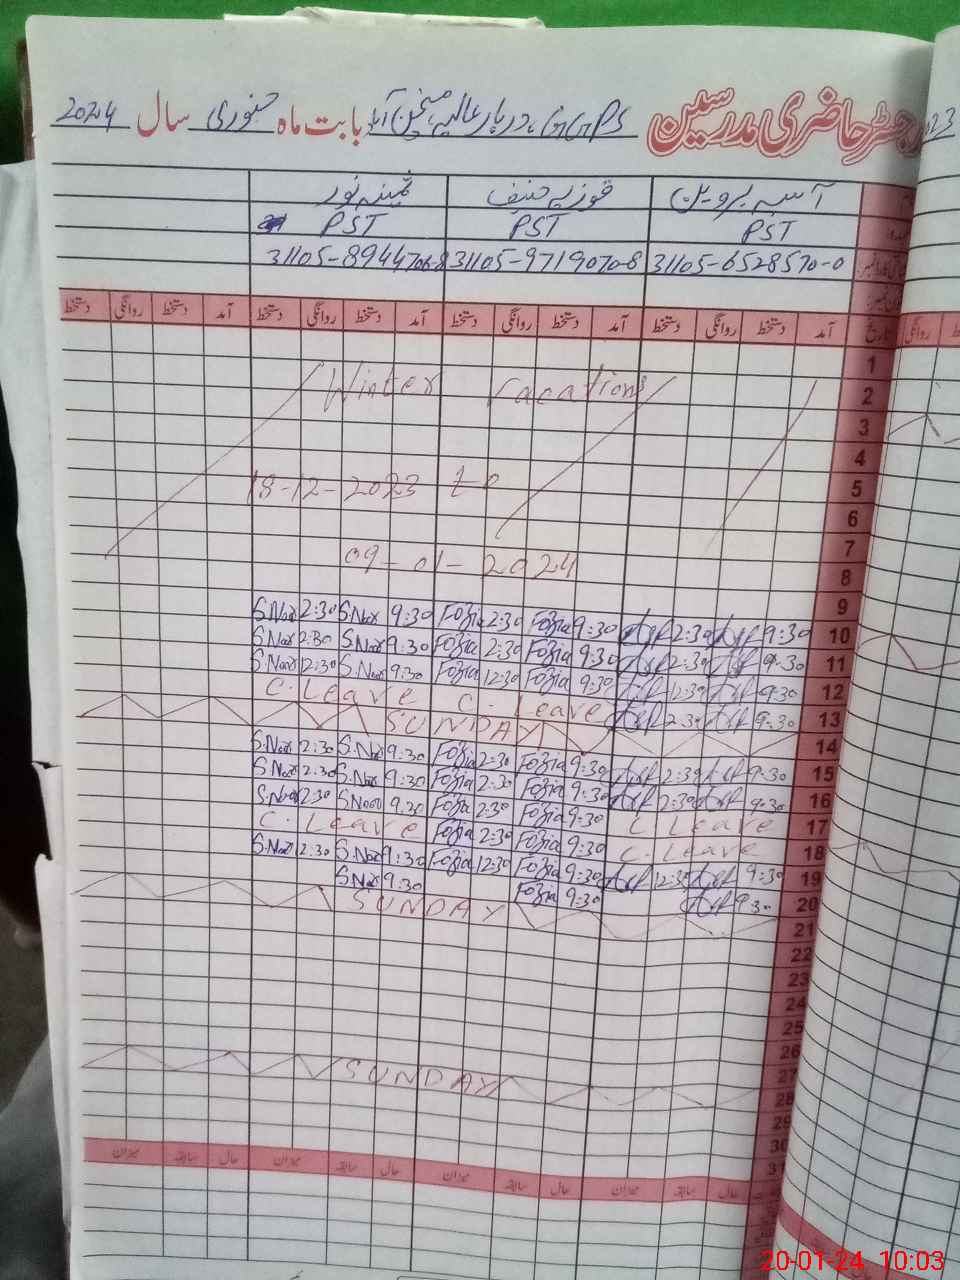 رجسٹر حاضری مدرسین GGPS دربار عالیہ منچن آباد بابت ماہ جنوری سال 2024
آسیہ پروین فوزیہ حنیف ثمینہ نور
PST PST PST
31105-6528570-0 31105-9719070-8 31105-8944706-8
تاریخ آمد دستخط روانگی دستخط آمد دستخط روانگی دستخط آمد دستخط روانگی دستخط آمد دستخط روانگی دستخط
1
Winter Vacations 2
3
4
18-12-2023 to 5
6
7
09-01-2024 8
9
S.Noor 2:30 S.Noor 9:30 Fozia 2:30 Fozia 9:30 2:30 9:30 10
S.Noor 2:30 S.Noor 9:30 Fozia 2:30 Fozia 9:30 2:30 9:30 11
S.Noor 12:30 S.Noor 9:30 Fozia 12:30 Fozia 9:30 12:30 9:30 12
C. Leave C. Leave 2:30 9:30 13
SUNDAY 14
S.Noor 2:30 S.Noor 9:30 Fozia 2:30 Fozia 9:30 2:30 9:30 15
S.Noor 2:30 S.Noor 9:30 Fozia 2:30 Fozia 9:30 2:30 9:30 16
S.Noor 2:30 S.Noor 9:30 Fozia 2:30 Fozia 9:30 C. Leave 17
C. Leave Fozia 2:30 Fozia 9:30 C. Leave 18
S.Noor 2:30 S.Noor 9:30 Fozia 12:30 Fozia 9:30 12:30 9:30 19
S.Noor 9:30 Fozia 9:30 9:30 20
SUNDAY 21
22
23
24
25
26
27
SUNDAY 28
29
30
31
حال سابقہ میزان حال سابقہ میزان حال سابقہ میزان حال سابقہ میزان
20-01-24 10:03